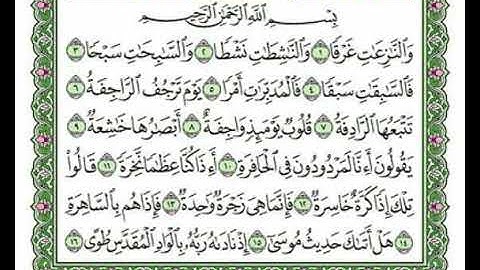 بِسْمِ اللَّهِ الرَّحْمَٰنِ الرَّحِيمِ
وَالنَّازِعَاتِ غَرْقًا ١ وَالنَّاشِطَاتِ نَشْطًا ٢ وَالسَّابِحَاتِ سَبْحًا ٣
فَالسَّابِقَاتِ سَبْقًا ٤ فَالْمُدَبِّرَاتِ أَمْرًا ٥ يَوْمَ تَرْجُفُ الرَّاجِفَةُ ٦
تَتْبَعُهَا الرَّادِفَةُ ٧ قُلُوبٌ يَوْمَئِذٍ وَاجِفَةٌ ٨ أَبْصَارُهَا خَاشِعَةٌ ٩
يَقُولُونَ أَءِنَّا لَمَرْدُودُونَ فِي الْحَافِرَةِ ١٠ أَءِذَا كُنَّا عِظَامًا نَّخِرَةً ١١ قَالُوا
تِلْكَ إِذًا كَرَّةٌ خَاسِرَةٌ ١٢ فَإِنَّمَا هِيَ زَجْرَةٌ وَاحِدَةٌ ١٣ فَإِذَا هُم بِالسَّاهِرَةِ
١٤ هَلْ أَتَاكَ حَدِيثُ مُوسَىٰ ١٥ إِذْ نَادَاهُ رَبُّهُ بِالْوَادِ الْمُقَدَّسِ طُوًى ١٦